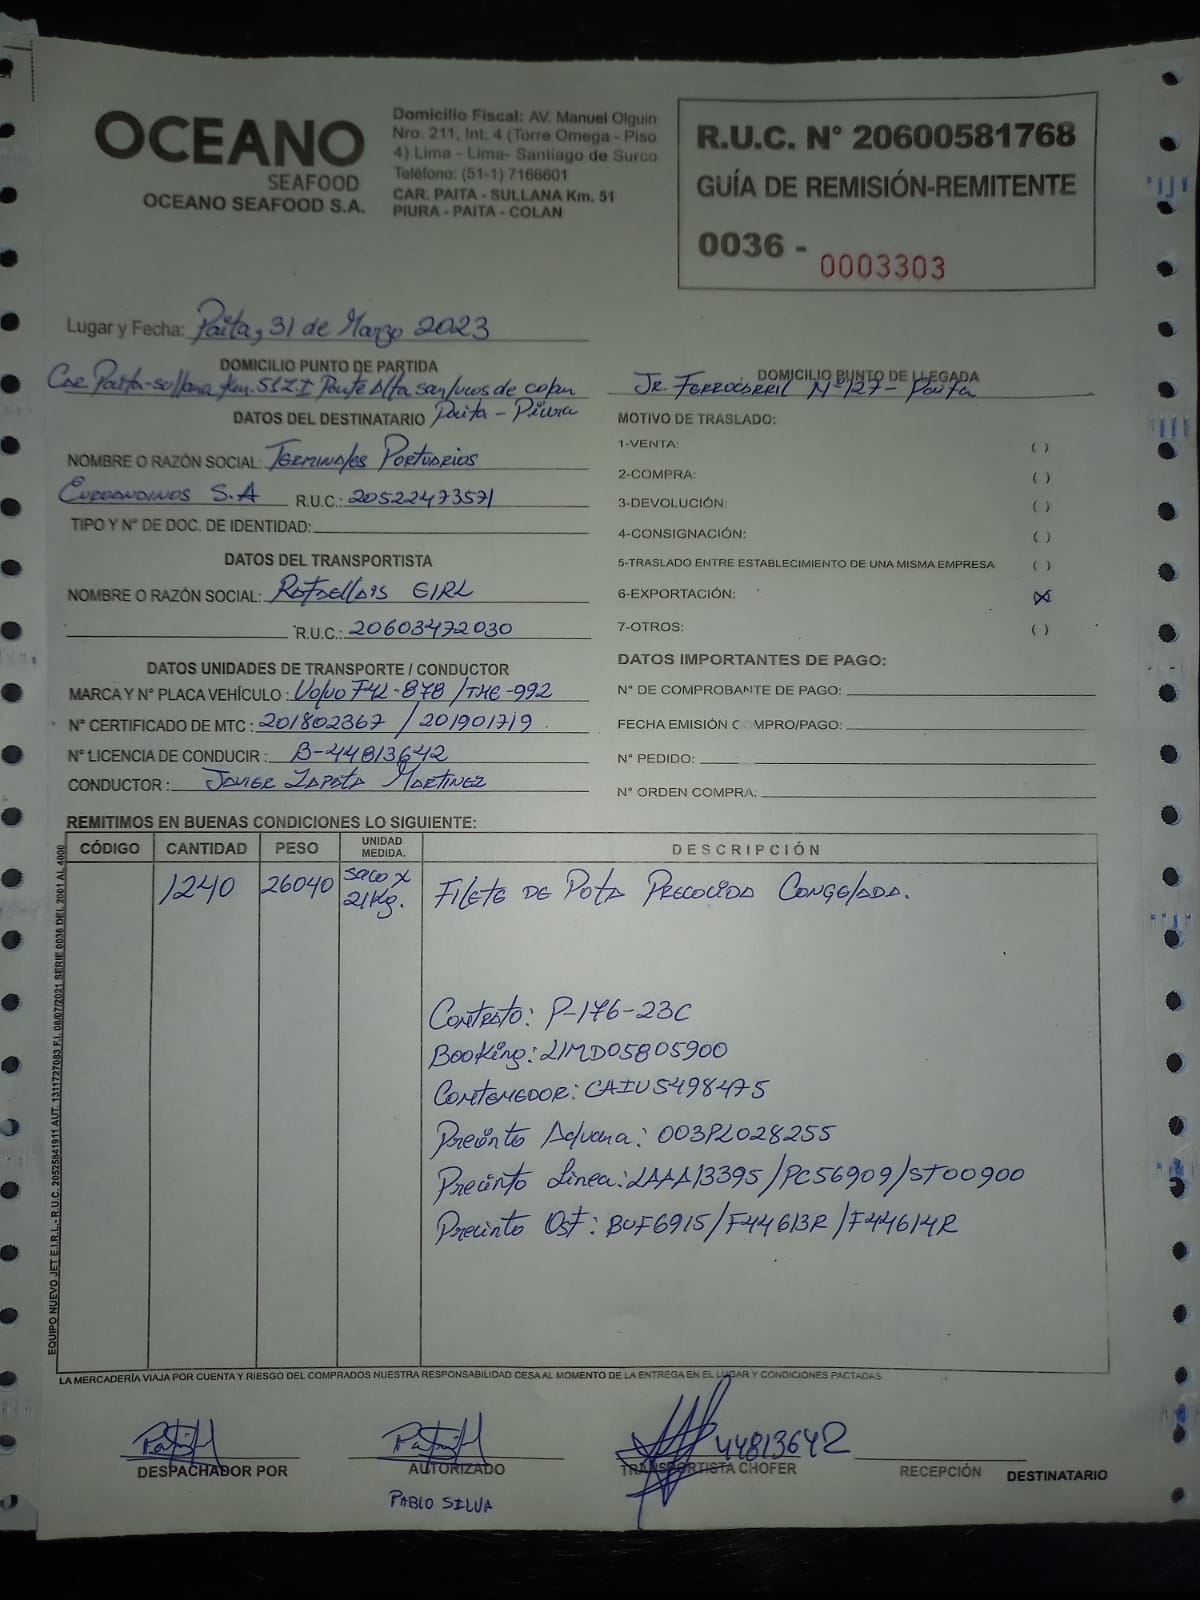 OCEANO
SEAFOOD
OCEANO SEAFOOD S.A.
Domicilio Fiscal: AV. Manuel Olguin
Nro. 211, Int. 4 (Torre Omega - Piso
4) Lima - Lima- Santiago de Surco
Teléfono: (51-1) 7166601
CAR. PAITA - SULLANA Km. 51
PIURA - PAITA - COLAN
R.U.C. N° 20600581768
GUÍA DE REMISIÓN-REMITENTE
0036 - 0003303
Lugar y Fecha: Paita, 31 de Marzo 2023
DOMICILIO PUNTO DE PARTIDA
Car. Paita-sullana Km. 51 Z.I Punte Alta san lucas de colan
Paita - Piura
DOMICILIO PUNTO DE LLEGADA
Jr. FERROCARRIL N°127 - Paita
DATOS DEL DESTINATARIO
NOMBRE O RAZÓN SOCIAL: TERMINALES PORTUARIOS
EUROANDINOS S.A R.U.C.: 20522473571
TIPO Y N° DE DOC. DE IDENTIDAD:
DATOS DEL TRANSPORTISTA
NOMBRE O RAZÓN SOCIAL: RAFAELLA'S EIRL
R.U.C.: 20603472030
DATOS UNIDADES DE TRANSPORTE / CONDUCTOR
MARCA Y N° PLACA VEHÍCULO : Volvo F4L-878 / THE-992
N° CERTIFICADO DE MTC : 201802367 / 201901719
N° LICENCIA DE CONDUCIR : B-44813642
CONDUCTOR : JAVIER ZAPATA MARTINEZ
MOTIVO DE TRASLADO:
1-VENTA: ( )
2-COMPRA: ( )
3-DEVOLUCIÓN: ( )
4-CONSIGNACIÓN: ( )
5-TRASLADO ENTRE ESTABLECIMIENTO DE UNA MISMA EMPRESA ( )
6-EXPORTACIÓN: (X)
7-OTROS: ( )
DATOS IMPORTANTES DE PAGO:
N° DE COMPROBANTE DE PAGO:
FECHA EMISIÓN COMPRO/PAGO:
N° PEDIDO:
N° ORDEN COMPRA:
REMITIMOS EN BUENAS CONDICIONES LO SIGUIENTE:
CÓDIGO CANTIDAD PESO UNIDAD MEDIDA. DESCRIPCIÓN
1240 26040 saco x 21Kg. FILETE DE POTA PRECOCIDA CONGELADA.
CONTRATO: P-176-23C
BOOKING: LIMD05805900
CONTENEDOR: CAIU5498475
Precinto Aduana: 003PL028255
Precinto Linea: LAAA13395/PC56909/ST00900
Precinto Osf: BUF6915/F44613R/F44614R
EQUIPO NUEVO JET E.I.R.L.- R.U.C. 20525841911 AUT. 1311727083 F.I. 08/07/2021 SERIE 0036 DEL 2001 AL 4000
LA MERCADERÍA VIAJA POR CUENTA Y RIESGO DEL COMPRADOS NUESTRA RESPONSABILIDAD CESA AL MOMENTO DE LA ENTREGA EN EL LUGAR Y CONDICIONES PACTADAS
44813642
DESPACHADOR POR AUTORIZADO TRANSPORTISTA CHOFER RECEPCIÓN DESTINATARIO
PABLO SILVA